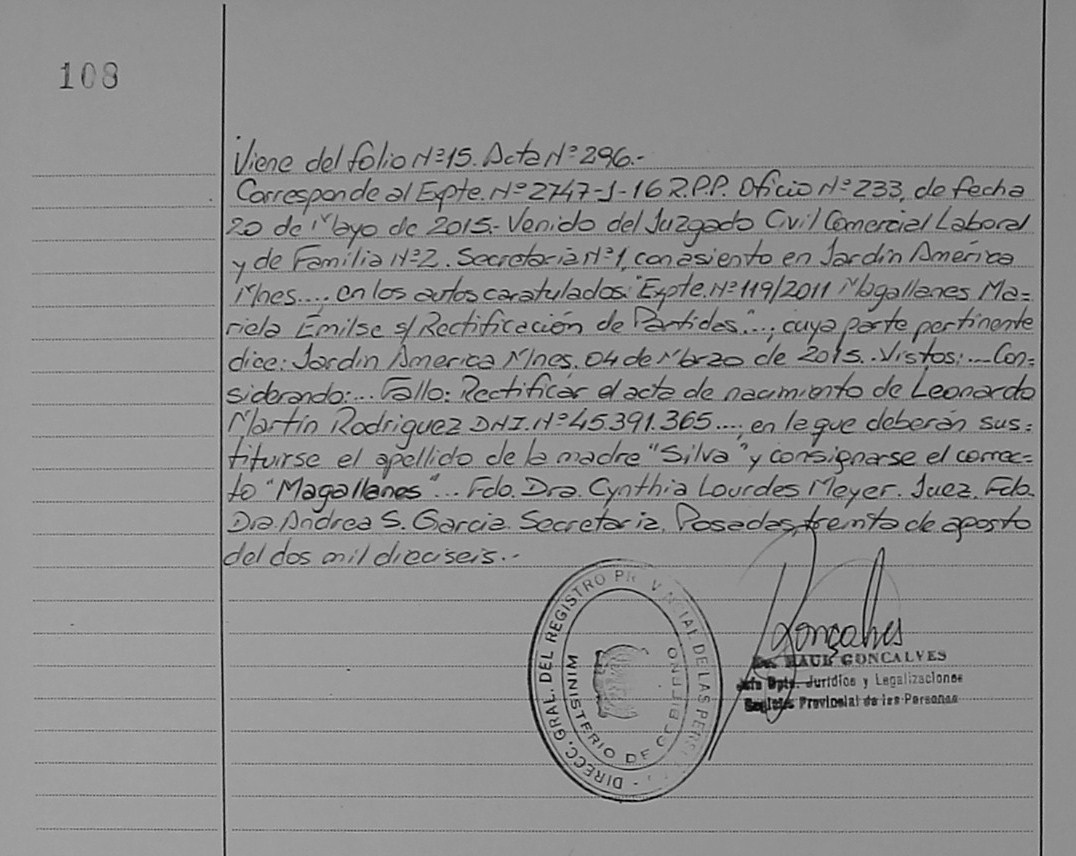 108
Viene del folio Nº 15. Acta Nº 296.-
Corresponde al Expte. Nº 2747-J-16 R.P.P. Oficio Nº 233, de fecha
20 de Mayo de 2015.- Venido del Juzgado Civil Comercial Laboral
y de Familia Nº 2. Secretaria Nº 1, con asiento en Jardin América
Mnes..., en los autos caratulados: "Expte. Nº 119/2011 Magallanes Ma=
riela Emilse s/ Rectificación de Partidas"..., cuya parte pertinente
dice: Jardin America Mnes, 04 de Marzo de 2015.. Vistos:... Con=
siderando:... Fallo: Rectificar el acta de nacimiento de Leonardo
Martín Rodriguez DNI. Nº 45.391.365..., en la que deberán sus=
tituirse el apellido de la madre "Silva" y consignarse el correc=
to "Magallanes"... Fdo. Dra. Cynthia Lourdes Meyer. Juez. Fdo.
Dra. Andrea S. Garcia. Secretaria. Posadas, treinta de agosto
del dos mil dieciseis.-
DIRECC. GRAL. DEL REGISTRO PROVINCIAL DE LAS
MINISTERIO DE GOBIERNO
Goncalves
Dr. RAUL GONCALVES
Jefe Dpto. Jurídico y Legalizaciones
Registro Provincial de las Personas